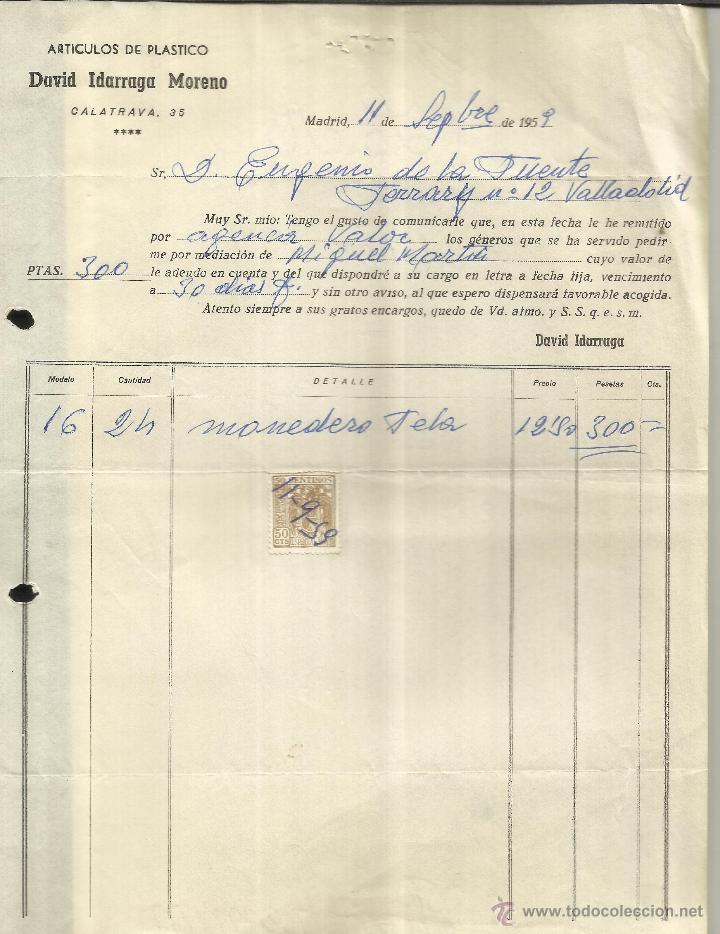 ARTICULOS DE PLASTICO
David Idarraga Moreno
CALATRAVA, 35
****
Madrid, 11 de Sepbre de 1959
Sr. D. Eugenio de la Fuente
nº 12 Valladolid
Muy Sr. mio: Tengo el gusto de comunicarle que, en esta fecha le he remitido
por agencia Valor los géneros que se ha servido pedir
me por mediación de Miguel Martin cuyo valor de
PTAS. 300 le adeudo en cuenta y del que dispondré a su cargo en letra a fecha fija, vencimiento
a 30 dias f. y sin otro aviso, al que espero dispensará favorable acogida.
Atento siempre a sus gratos encargos, quedo de Vd. atmo. y S. S. q. e. s. m.
David Idarraga
Modelo Cantidad DETALLE Precio Pesetas Cts.
16 24 monedero Tela 12'50 300 =
50 CENTIMOS
11-9-59
50
CTS
www.todocoleccion.net